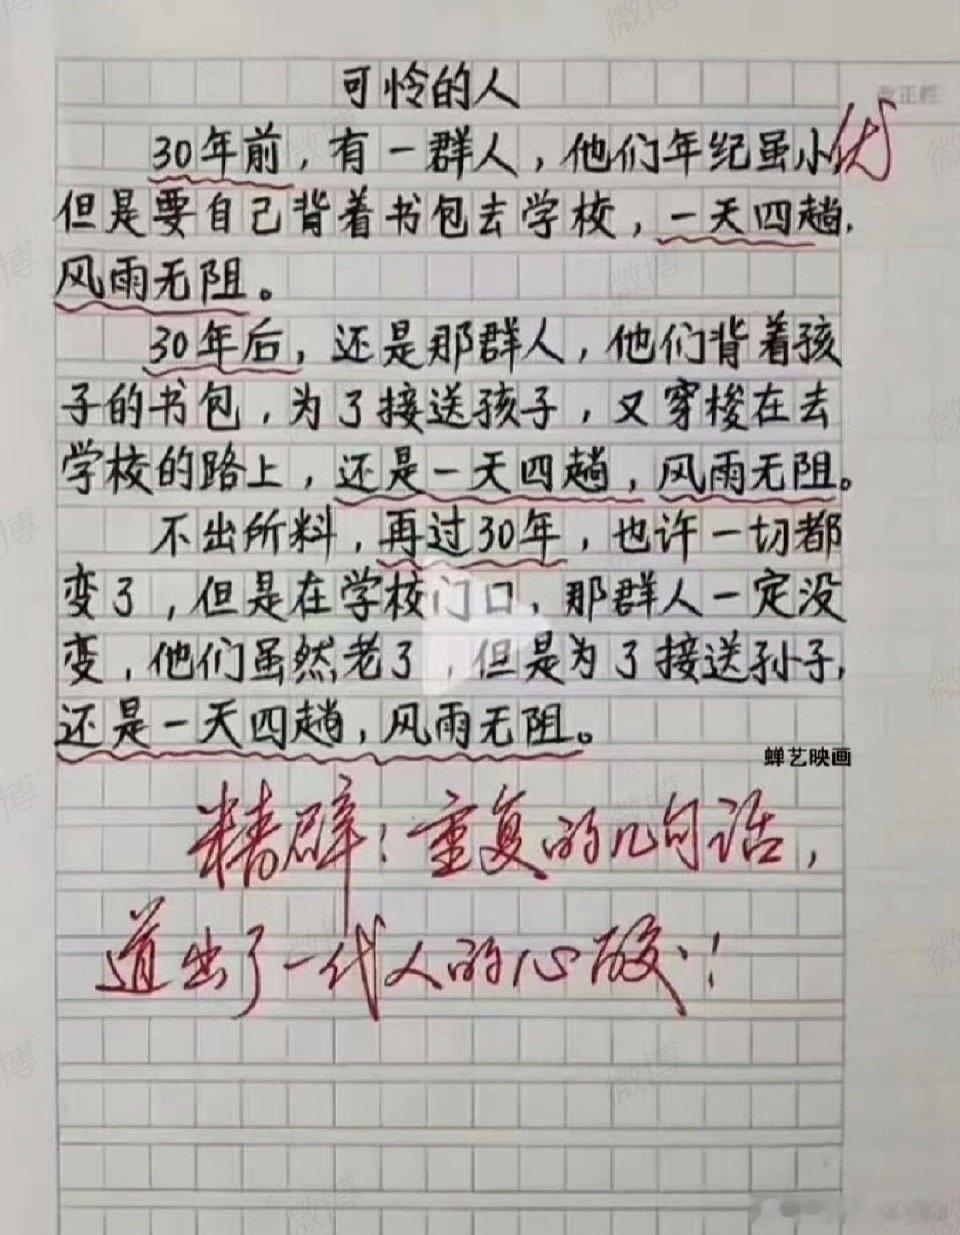 可怜的人
改正栏
30年前，有一群人，他们年纪虽小
优
但是要自己背着书包去学校，一天四趟，
风雨无阻。
30年后，还是那群人，他们背着孩
子的书包，为了接送孩子，又穿梭在去
学校的路上，还是一天四趟，风雨无阻。
不出所料，再过30年，也许一切都
变了，但是在学校门口，那群人一定没
变，他们虽然老了，但是为了接送孙子，
还是一天四趟，风雨无阻。
蝉艺映画
精辟！重复的几句话，
道出了一代人的心酸！
微博